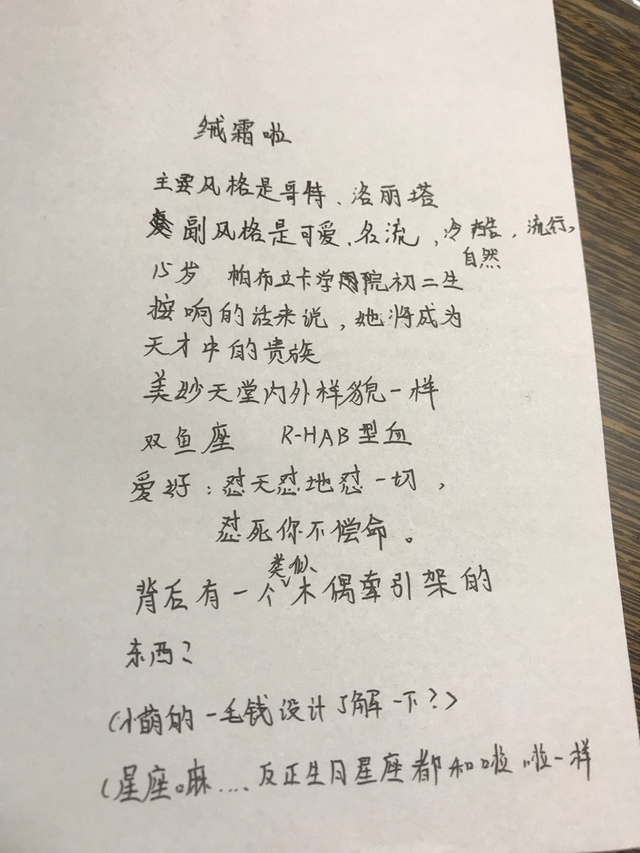 绒霜啦
主要风格是哥特、洛丽塔
副风格是可爱、名流、冷酷、流行、
自然
15岁 帕布立卡学院初二生
按响的话来说，她将成为
天才中的贵族
美妙天堂内外样貌一样
双鱼座 R-HAB型血
爱好：怼天怼地怼一切，
怼死你不偿命。
背后有一个类似木偶牵引架的
东西？
（小萌的一毛钱设计了解一下？）
（星座嘛....反正生日星座都和啦啦一样